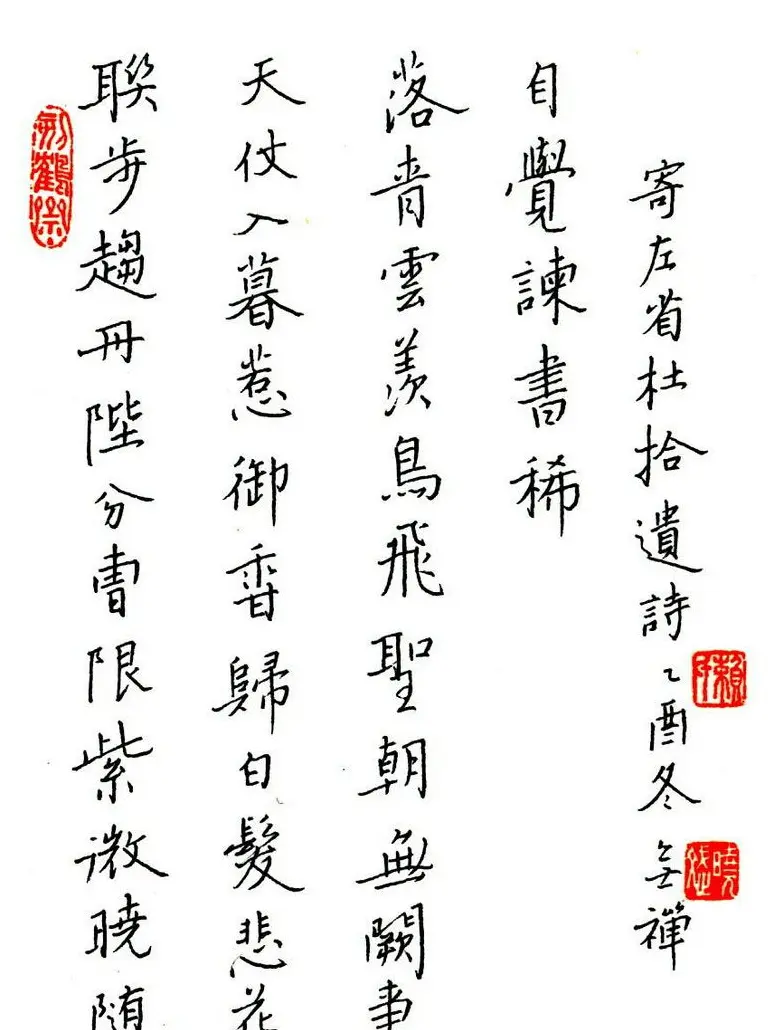 聯步趨丹陛分曹限紫微暁随
天仗入暮惹御香歸白髮悲花
落青雲羨鳥飛聖朝無闕事
自覺諫書稀
寄左省杜拾遺詩乙酉冬無禪